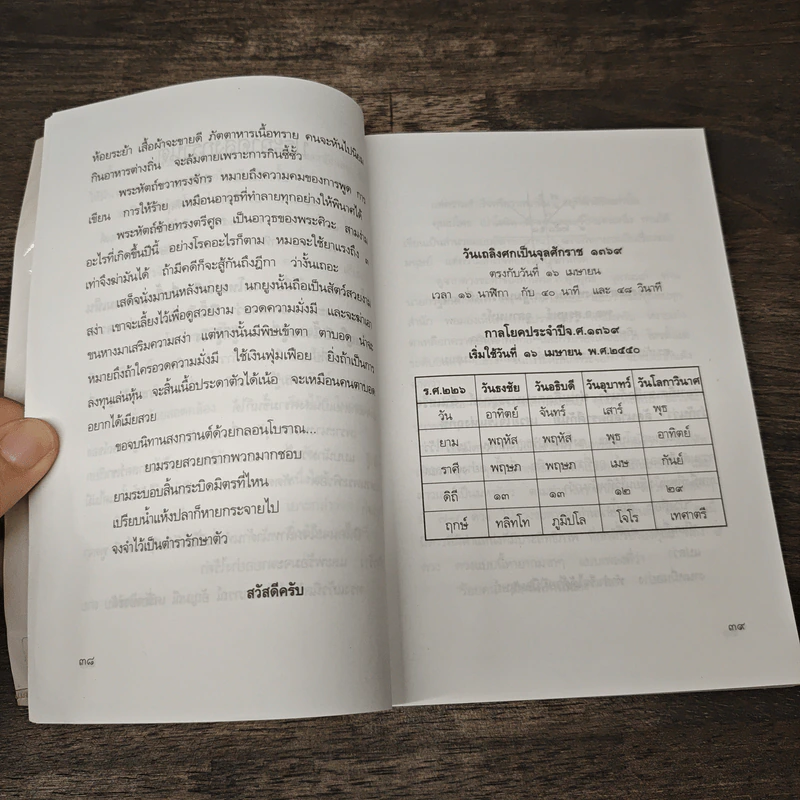 ห้อยระย้า เสื้อผ้าจะขายดี ภัตตาหารเนื้อทราย คนจะหันไปนิยม
กินอาหารต่างถิ่น จะล้มตายเพราะการกินซี้ซั้ว
พระหัตถ์ขวาทรงจักร หมายถึงความคมของการพูด การ
เขียน การให้ร้าย เหมือนอาวุธที่ทำลายทุกอย่างให้พินาศได้
พระหัตถ์ซ้ายทรงตรีศูล เป็นอาวุธของพระศิวะ สามง่าม
อะไรที่เกิดขึ้นปีนี้ อย่างโรคอะไรก็ตาม หมอจะใช้ยาแรงถึง ๓
เท่าจึงฆ่ามันได้ ถ้ามีคดีก็จะสู้กันถึงฎีกา ว่างั้นเถอะ
เสด็จนั่งมาบนหลังนกยูง นกยูงนั้นถือเป็นสัตว์สวยงาม
สง่า เขาจะเลี้ยงไว้เพื่อดูสวยงาม อวดความมั่งมี และจะฆ่าเอา
ขนหางมาเสริมความสง่า แต่หางนั้นมีพิษเข้าตา ตาบอด น่าจะ
หมายถึงถ้าใครอวดความมั่งมี ใช้เงินฟุ่มเฟือย ยิ่งถ้าเป็นการ
ลงทุนเล่นหุ้น จะสิ้นเนื้อประดาตัวได้เน้อ จะเหมือนคนตาบอด
อยากได้เมียสวย
ขอจบนิทานสงกรานต์ด้วยกลอนโบราณ...
ยามรวยสวยกรากพวกมากชอบ
ยามระบอบสิ้นกระบิดมิตรที่ไหน
เปรียบน้ำแห้งปลาก็หายกระจายไป
จงจำไว้เป็นตำรารักษาตัว
สวัสดีครับ
๓๘
วันเถลิงศกเป็นจุลศักราช ๑๓๖๙
ตรงกับวันที่ ๑๖ เมษายน
เวลา ๑๖ นาฬิกา กับ ๔๐ นาที และ ๔๘ วินาที
กาลโยคประจำปีจ.ศ.๑๓๖๙
เริ่มใช้วันที่ ๑๖ เมษายน พ.ศ.๒๕๕๐
ร.ศ.๒๒๖ วันธงชัย วันอธิบดี วันอุบาทว์ วันโลกาวินาศ
วัน อาทิตย์ จันทร์ เสาร์ พุธ
ยาม พฤหัส พฤหัส พุธ อาทิตย์
ราศี พฤษภ พฤษภ เมษ กันย์
ดิถี ๑๓ ๑๓ ๑๒ ๒๙
ฤกษ์ ทลิทโท ภูมิปโล โจโร เทศาตรี
๓๙